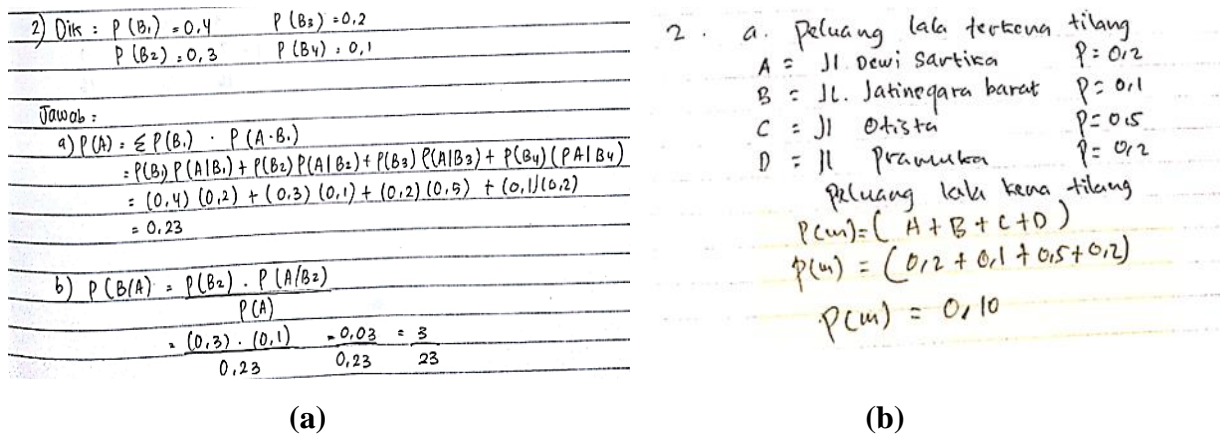 2) Dik : P (B₁) = 0,4 P (B₃) = 0,2
P (B2) : 0,3 P (B4) : 0,1
Jawab :
a) P(A) = Σ P(B.) . P (A·B.)
= P(B₁) P(A|B₁) + P(B2) P(A|B2) + P(B3) P(A|B3) + P(B4) (PA|B4)
= (0,4) (0,2) + (0,3) (0,1) + (0,2) (0,5) + (0,1) (0,2)
= 0,23
b) P (B/A) = P(B2) . P (A/B2)
P (A)
= (0,3) . (0,1) = 0,03 = 3
0,23 0,23 23
(a)
2. a. Peluang lala terkena tilang
A = Jl. Dewi Sartika P = 0,2
B = JL. Jatinegara barat P = 0,1
C = Jl Otista P = 0,5
D = Jl Pramuka P = 0,2
Peluang lala kena tilang
P(m) = ( A + B + C + D )
P(m) = (0,2 + 0,1 + 0,5 + 0,2)
P(m) = 0,10
(b)